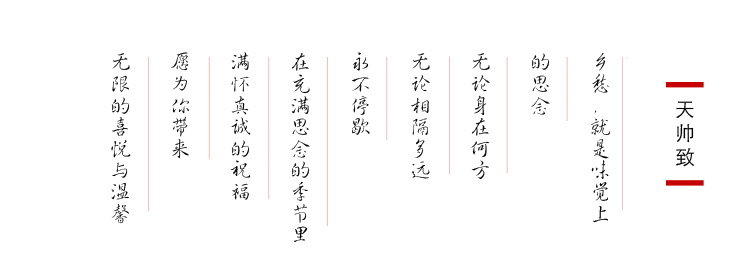 天帅致
乡愁，就是味觉上
的思念
无论身在何方
无论相隔多远
永不停歇
在充满思念的季节里
满怀真诚的祝福
愿为你带来
无限的喜悦与温馨